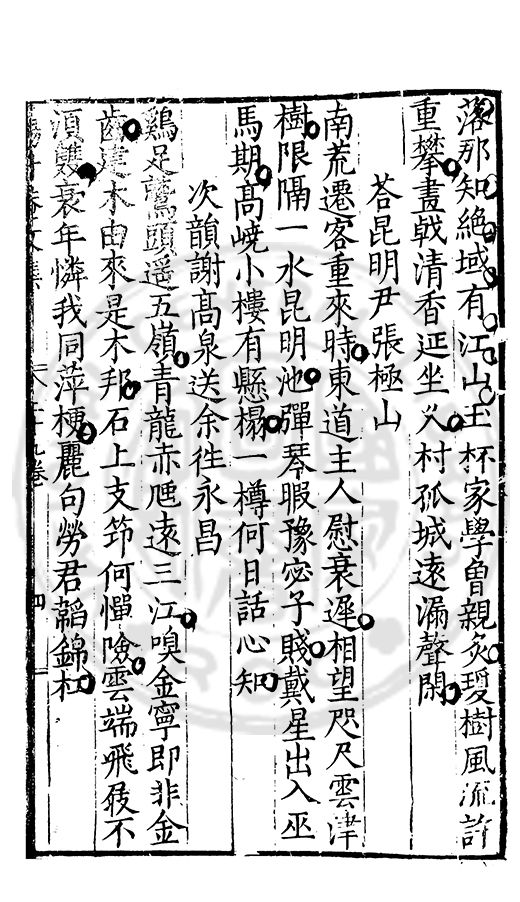 落那知絶域有江山玉杯家學曾親炙瓊樹風流許
重攀畫戟清香延坐乆村孤城遠漏聲閑
荅昆明尹張極山
南荒遷客重來時東道主人慰衰遲相望咫尺雲津
樹限隔一水昆明池彈琴暇豫宓子賤戴星出入巫
馬期高嶢小樓有懸榻一樽何日話心知
次韻謝高泉送余徃永昌
鷄足鷲頭遥五嶺青龍赤虺遠三江嗅金寧即非金
齒建木由來是木邦石上支笻何憚險雲端飛屐不
湏雙衰年憐我同萍梗麗句勞君韜錦杠
卷 四